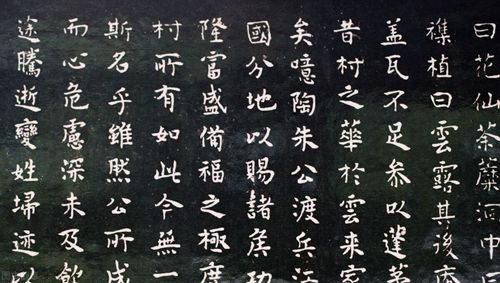 曰花仙荼蘼洞中
襍植曰雲露其後
盖瓦不足叅以蓬茅
昔村之華於雲来窩
矣噫陶朱公渡兵江
國分地以賜諸矦功
隆富盛備福之極度
村所有如此今無一
斯名乎雖然公所成
而心危慮深未及飲
途騰逝變姓埽迹以